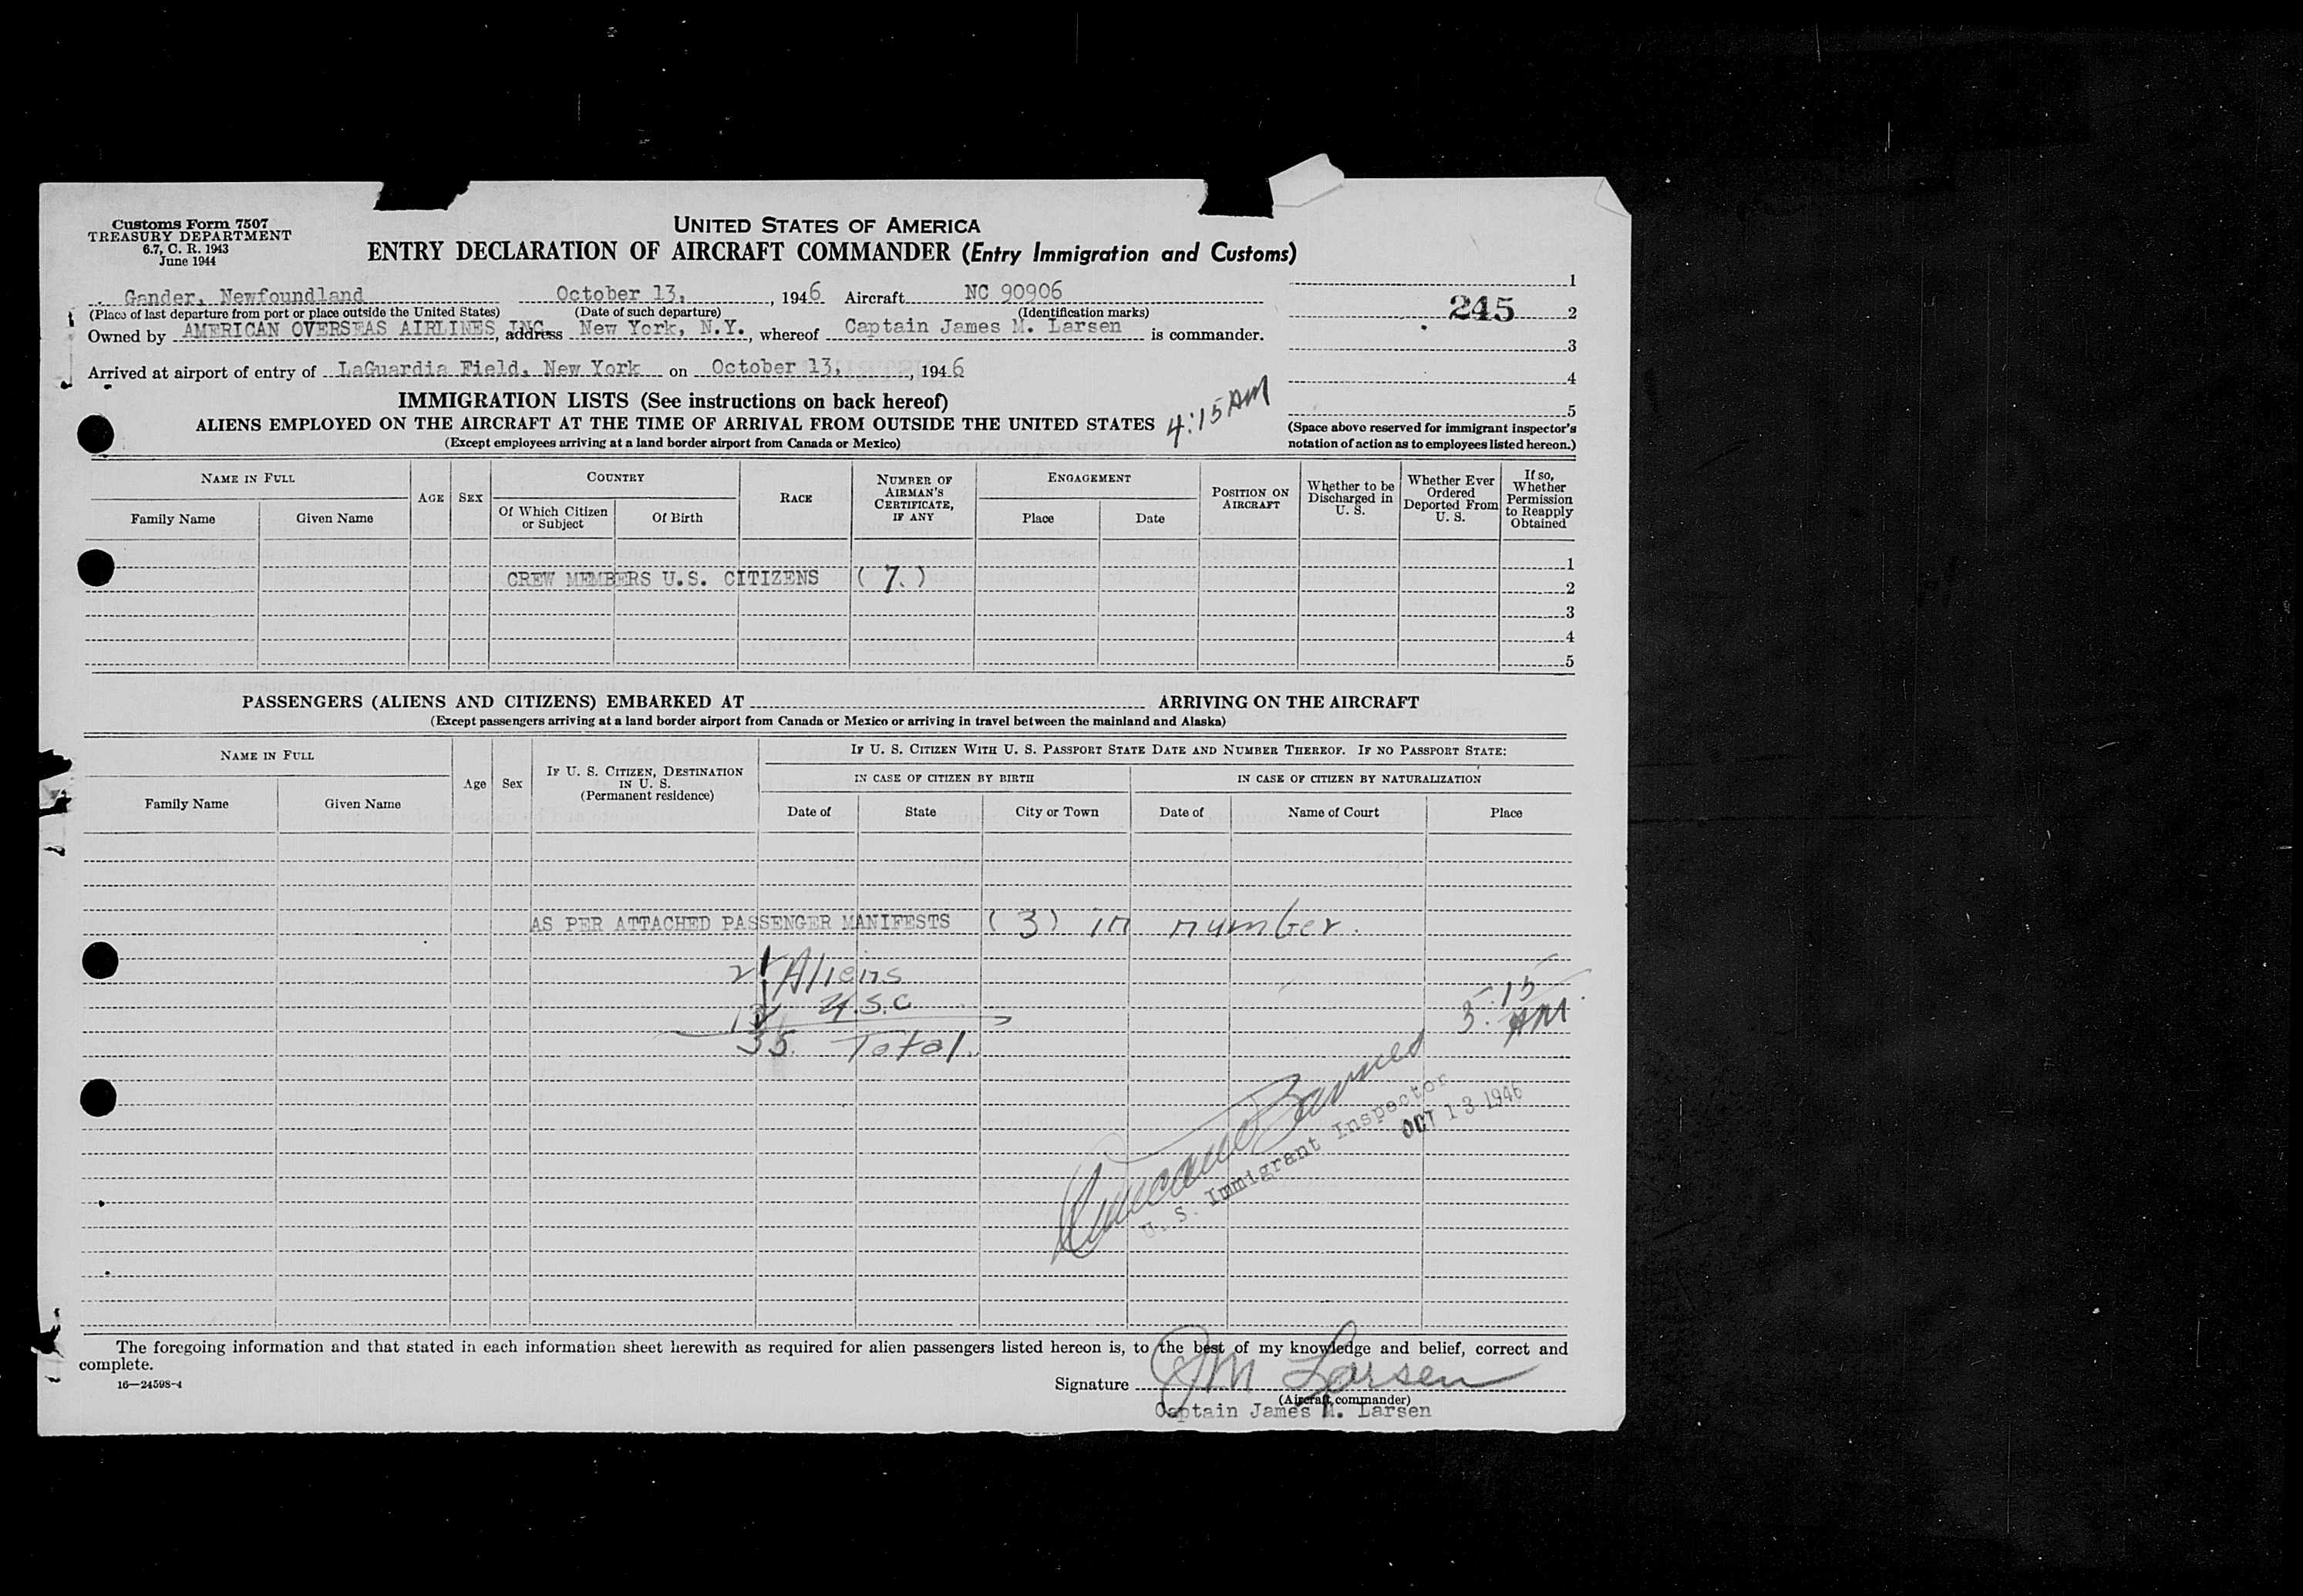 Customs Form 7507
TREASURY DEPARTMENT
6.7, C. R. 1943
June 1944
UNITED STATES OF AMERICA
ENTRY DECLARATION OF AIRCRAFT COMMANDER (Entry Immigration and Customs)
Gander, Newfoundland October 13, , 1946 Aircraft NC 90906
(Place of last departure from port or place outside the United States) (Date of such departure) (Identification marks)
Owned by AMERICAN OVERSEAS AIRLINES, INC., address New York, N.Y., whereof Captain James M. Larsen is commander.
Arrived at airport of entry of LaGuardia Field, New York on October 13, , 1946
1
245 2
3
4
5
(Space above reserved for immigrant inspector's
notation of action as to employees listed hereon.)
IMMIGRATION LISTS (See instructions on back hereof)
ALIENS EMPLOYED ON THE AIRCRAFT AT THE TIME OF ARRIVAL FROM OUTSIDE THE UNITED STATES 4:15 AM
(Except employees arriving at a land border airport from Canada or Mexico)
NAME IN FULL
Family Name Given Name
AGE SEX
COUNTRY
Of Which Citizen or Subject Of Birth
RACE
NUMBER OF AIRMAN'S CERTIFICATE, IF ANY
ENGAGEMENT
Place Date
POSITION ON AIRCRAFT
Whether to be Discharged in U. S.
Whether Ever Ordered Deported From U. S.
If so, Whether Permission to Reapply Obtained
1
CREW MEMBERS U.S. CITIZENS ( 7. ) 2
3
4
5
PASSENGERS (ALIENS AND CITIZENS) EMBARKED AT ARRIVING ON THE AIRCRAFT
(Except passengers arriving at a land border airport from Canada or Mexico or arriving in travel between the mainland and Alaska)
NAME IN FULL
Family Name Given Name
Age Sex
IF U. S. CITIZEN, DESTINATION IN U. S.
(Permanent residence)
IF U. S. CITIZEN WITH U. S. PASSPORT STATE DATE AND NUMBER THEREOF. IF NO PASSPORT STATE:
IN CASE OF CITIZEN BY BIRTH IN CASE OF CITIZEN BY NATURALIZATION
Date of State City or Town Date of Name of Court Place
AS PER ATTACHED PASSENGER MANIFESTS (3) in number.
Aliens
U.S.C
35. Total.
5:15
AM
Barnes
U. S. Immigrant Inspector
OCT 13 1946
The foregoing information and that stated in each information sheet herewith as required for alien passengers listed hereon is, to the best of my knowledge and belief, correct and
complete.
16—24598-4
Signature JM Larsen
(Aircraft commander)
Captain James M. Larsen